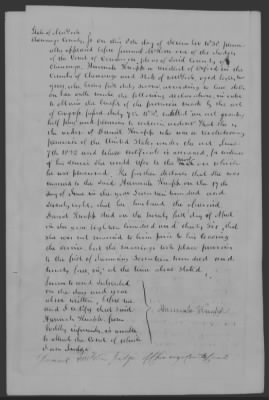 State of New York
Chenango County, ss on this 8th day of December 1838 person-
ally appeared before Samuel McKoon one of the Judges
of the Court of Common pleas of said County of
Chenango, Hannah Knapp a resident of Oxford in the
County of Chenango and State of New York aged eighty two
years, who being first duly sworn, according to law, doth
on her oath make the following declaration, in order
to obtain the benefit of the provision made by the act
of Congress passed July 7th 1838, entitled "an act granting
half pay and pensions to certain widows" That she is
the widow of Daniel Knapp who was a revolutionary
pensioner of the United States under the act June
7th 1832 whose certificate is annexed, for evidence
of his service she would refer to the on which
he was pensioned. She further declares that she was
married to the said Daniel Knapp on the 17th
day of June in the year Seventeen hundred and
, that her husband the aforesaid
Daniel Knapp died on the twenty first day of April
in the year eighteen hundred and thirty six, that
she was not married to him prior to his leaving
the service but the marriage took place previous
to the first of January Seventeen hundred and
ninety four, viz, at the time above stated.
Sworn to and subscribed
on the day and year
above written, before me
and I certify that said
Hannah Knapp, from
bodily infirmity, is unable
to attend the Court of which
I am Judge
Hannah Knapp
Samuel McKoon Judge of Chenango